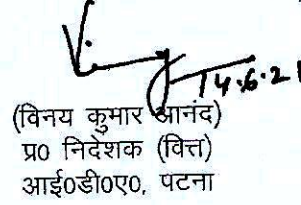 14.6.21
(विनय कुमार आनंद)
प्र0 निदेशक (वित्त)
आई0डी0ए0, पटना